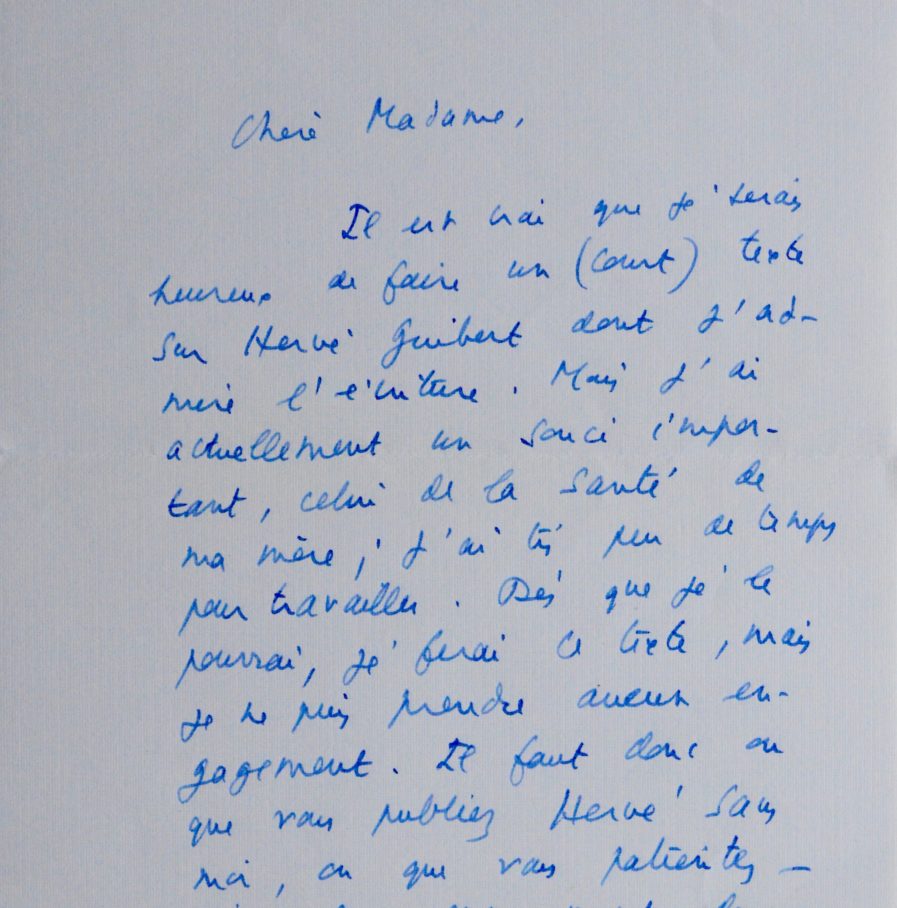 Chère Madame,
Il est vrai que je serais
heureux de faire un (court) texte
sur Hervé Guibert dont j'ad-
mire l'écriture. Mais j'ai
actuellement un souci impor-
tant, celui de la santé de
ma mère ; j'ai très peu de temps
pour travailler. Dès que je le
pourrai, je ferai ce texte, mais
je ne puis prendre aucun en-
gagement. Il faut donc ou
que vous publiez Hervé sans
moi, ou que vous patientiez –